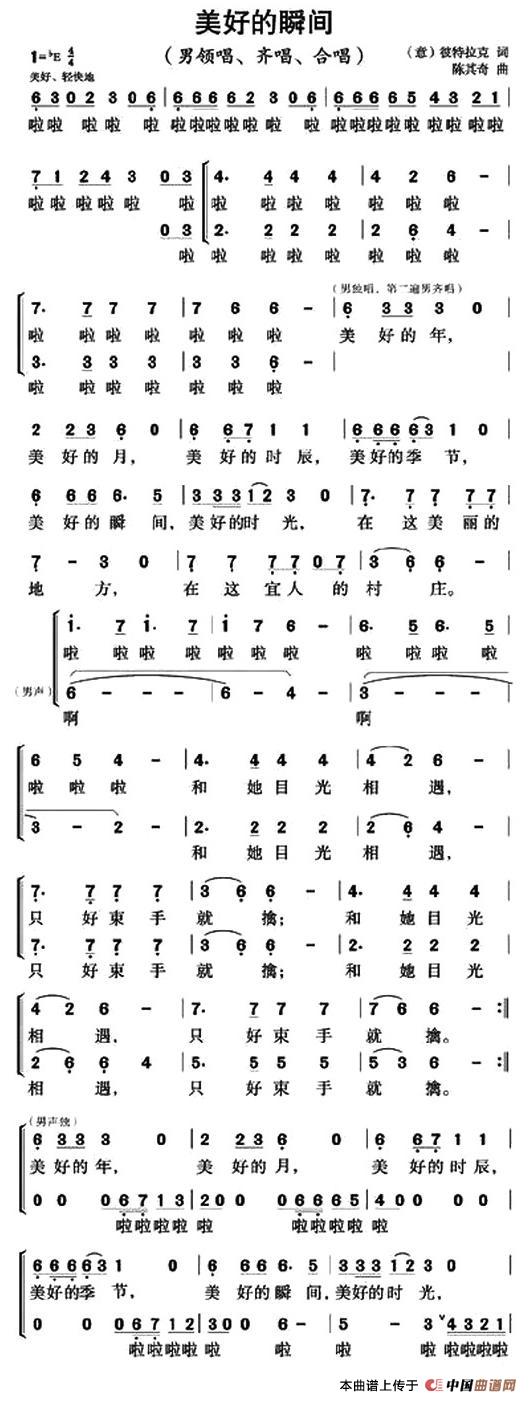 美好的瞬间
(男领唱、齐唱、合唱)
1=♭E 4/4
(意)彼特拉克 词
陈其奇 曲
美好、轻快地
6 3 0 2 3 0 6 | 6 6 6 6 6 2 3 0 6 | 6 6 6 6 5 4 3 2 1
啦啦 啦啦 啦 啦啦啦啦啦 啦啦 啦 啦啦啦啦啦啦啦啦
7 1 2 4 3 0 3 | 4. 4 4 4 | 4 2 6 -
啦啦啦啦啦 啦 啦 啦啦 啦 啦 啦 啦
0 3 | 2. 2 2 2 | 2 6 4 -
啦 啦 啦啦 啦 啦 啦 啦
(男独唱,第二遍男齐唱)
7. 7 7 7 | 7 6 6 - | 6 3 3 3 0
啦 啦 啦 啦 啦 啦 啦 美 好的年,
3. 3 3 3 | 3 3 6 - |
啦 啦 啦 啦 啦 啦 啦
2 2 3 6 0 | 6 6 7 1 1 | 6 6 6 6 3 1 0
美 好的月, 美 好的时辰, 美好的季 节,
6 6 6 6. 5 | 3 3 3 1 2 3 0 | 7. 7 7 7 7
美 好的瞬 间,美好的时 光, 在 这 美 丽的
7 - 3 0 | 7 7 7 7 0 7 | 3 6 6 -
地 方, 在 这 宜人 的 村 庄。
1. 7 1. 7 | 1 7 6 - | 6. 5 6. 5
啦 啦 啦 啦 啦 啦 啦 啦 啦 啦 啦
(男声)
6 - - - | 6 - 4 - | 3 - - -
啊 啊
6 5 4 - | 4. 4 4 4 | 4 2 6 -
啦 啦 啦 和 她目光 相 遇,
3 - 2 - | 2. 2 2 2 | 2 6 4 -
和 她目光 相 遇,
7. 7 7 7 | 3 6 6 - | 4. 4 4 4
只 好束手 就 擒; 和 她目光
7. 7 7 7 | 3 6 6 - | 2. 2 2 2
只 好束手 就 擒; 和 她目光
4 2 6 - | 7. 7 7 7 | 7 6 6 - :‖
相 遇, 只 好束手 就 擒。
2 6 6 4 | 5. 5 5 5 | 5 3 6 - :‖
相 遇, 只 好束手 就 擒。
(男声独)
6 3 3 3 0 | 2 2 3 6 0 | 6 6 7 1 1
美 好的年, 美 好的月, 美 好的时辰,
0 0 0 6 7 1 3 | 2 0 0 0 6 6 6 6 5 | 4 0 0 0 0
啦啦啦啦 啦 啦啦啦啦 啦
6 6 6 6 3 1 0 | 6 6 6 6. 5 | 3 3 3 1 2 3 0
美好的季 节, 美 好的瞬 间,美好的时 光,
0 0 0 6 7 1 2 | 3 0 0 6 - | 5 - 3 4 3 2 1
啦啦啦啦 啦 啦 啦 啦 啦啦啦啦
本曲谱上传于 中国曲谱网